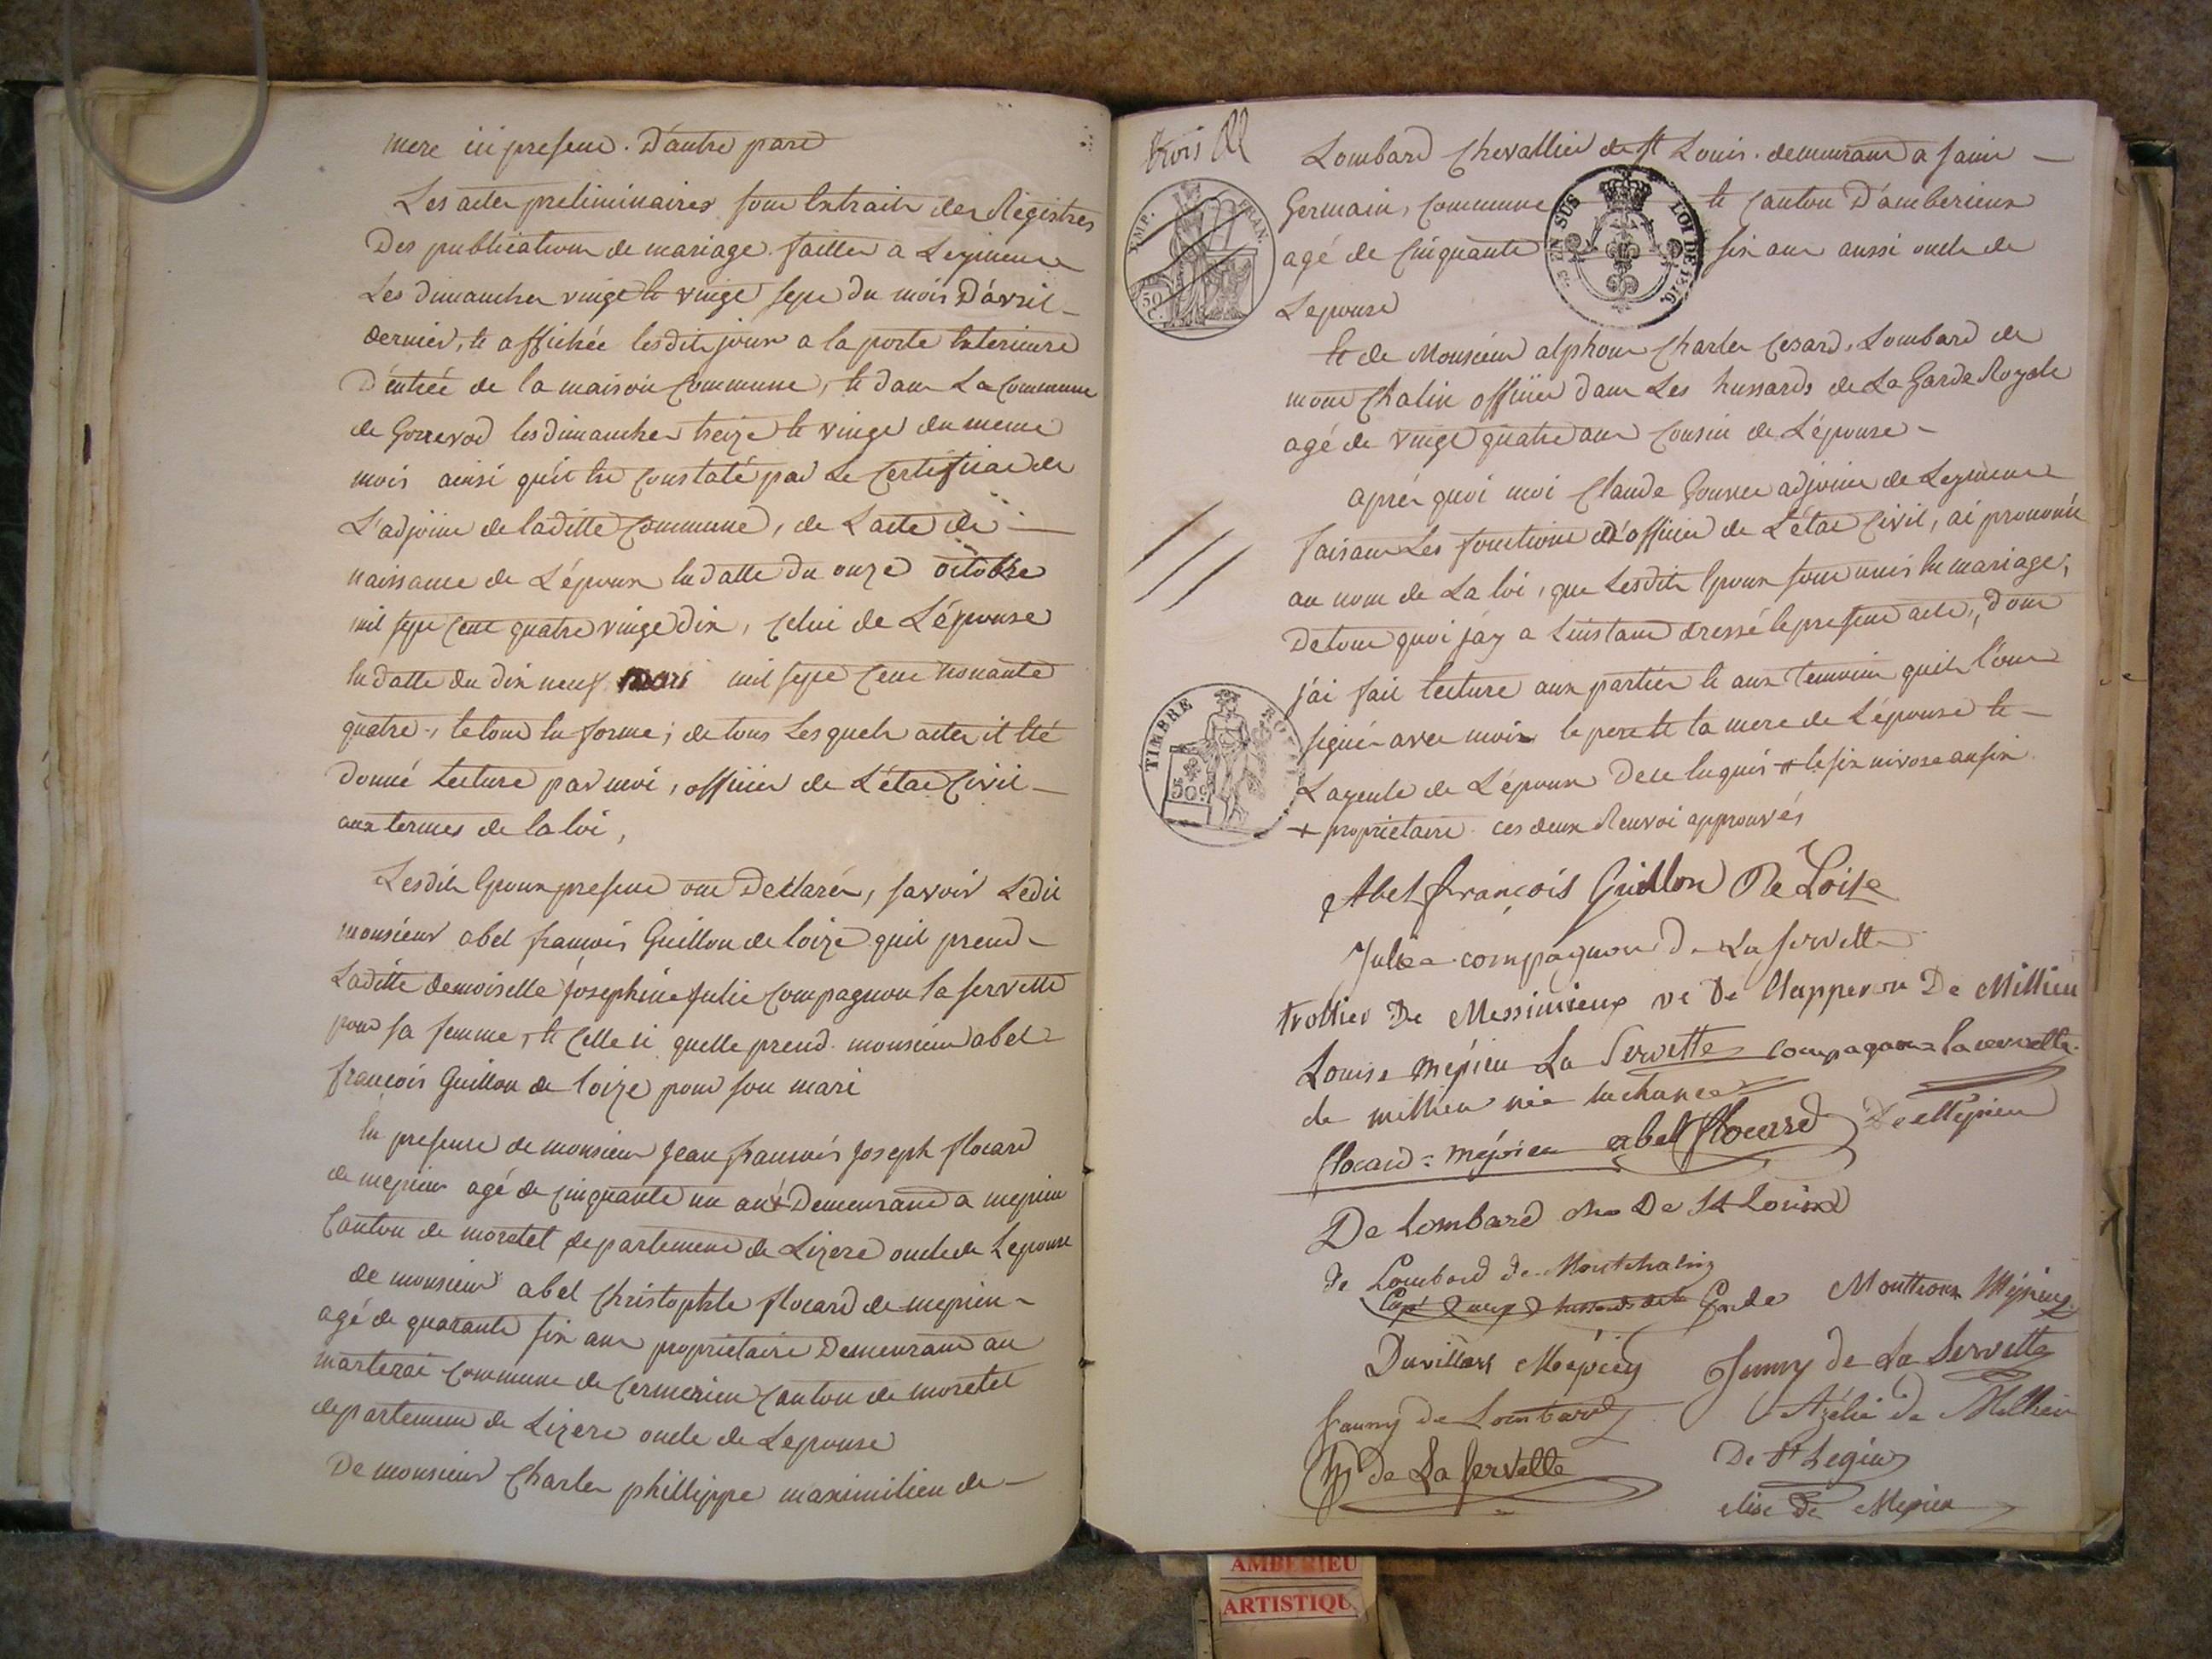 mere ici present. D'autre part
Les actes preliminaires sont Extraits des Registres
Des publications de mariage faittes a Leyment
Les dimanches vingt et vingt sept du mois D'avril
dernier, et affichée lesdits jours a la porte Exterieure
D'entrée de la maison Commune, et dans La Commune
de Gorrevod les dimanches treize et vingt du meme
mois ainsi qu'il Est Constaté par Le Certificat de
L'adjoint de laditte Commune, de L'acte de
naissance de L'époux En datte du onze octobre
mil sept Cent quatre vingt dix, Celui de L'épouse
En datte du dix neuf mars mil sept Cent nonante
quatre, le tout En forme; de tous Lesquels actes il Eté
donné Lecture par moi, officier de L'état Civil
aux termes de la loi,
Lesdits Epoux present ont Declarés, savoir Ledit
monsieur abel françois Guillon de loize quil prend
Laditte demoiselle josephine julie Compagnon la servette
pour sa femme, et Celle ci quelle prend monsieur abel
françois Guillon de loize pour son mari
En presence de monsieur jean francois joseph flocard
de mepieu agé de Cinquante un ans Demeurant a mepieu
Canton de morestel departement de Lizere oncle de Lepouse
de monsieur abel Christophle flocard de mepieu
agé de quarante six ans proprietaire Demeurant au
marterai Commune de Cermerieu Canton de morestel
departement de Lizere oncle de Lepouse
De monsieur Charles phillippe maximilien de
trois
Lombard Chevallier de st Louis. demeurant a saint
Germain, Commune et Canton D'amberieux
agé de Cinquante six ans aussi oncle de
Lepouse
YMP. FRAN.
50 C.
C. EN SUS LOI DE 1816.
Et de Monsieur alphonse Charles Cesard, Lombard de
mont Chalin officier dans Les hussards de La Garde Royale
agé de vingt quatre ans Cousin de L'épouse
aprés quoi moi Claude adjoint de Leyment
faisant Les fonctions d'officier de L'état Civil, ai prononcée
au nom de La loi, que Lesdits Epoux sont unis En mariage;
De tout quoi jay a Linstant dressé le present acte, Dont
j'ai fait lecture aux parties et aux temoins quils l'ont
signés avec moi, le pere et la mere de L'épouse et
L'ayeule de L'époux De ce Enquis + le six nivose an six
+ proprietaire ces deux Renvoi approuvés
TIMBRE ROYAL
50 c
Abel françois Guillon De Loize
Julie compagnon De La servette
trollier De Messimieux ve De Clapperon De Millieu
Louise mépieu La Servette compagnon la servette
de millieu née luchance
flocard = mépieu abel flocard De Mepieu
De Lombard cher De St Louis
de Lombard de Montchalin
Garde Mépieu
Mépieu Fanny de La Servette
fanny de Lombard Azélie de Millieu
de La Servette De St
elise De Mepieu
AMBERIEU
ARTISTIQU